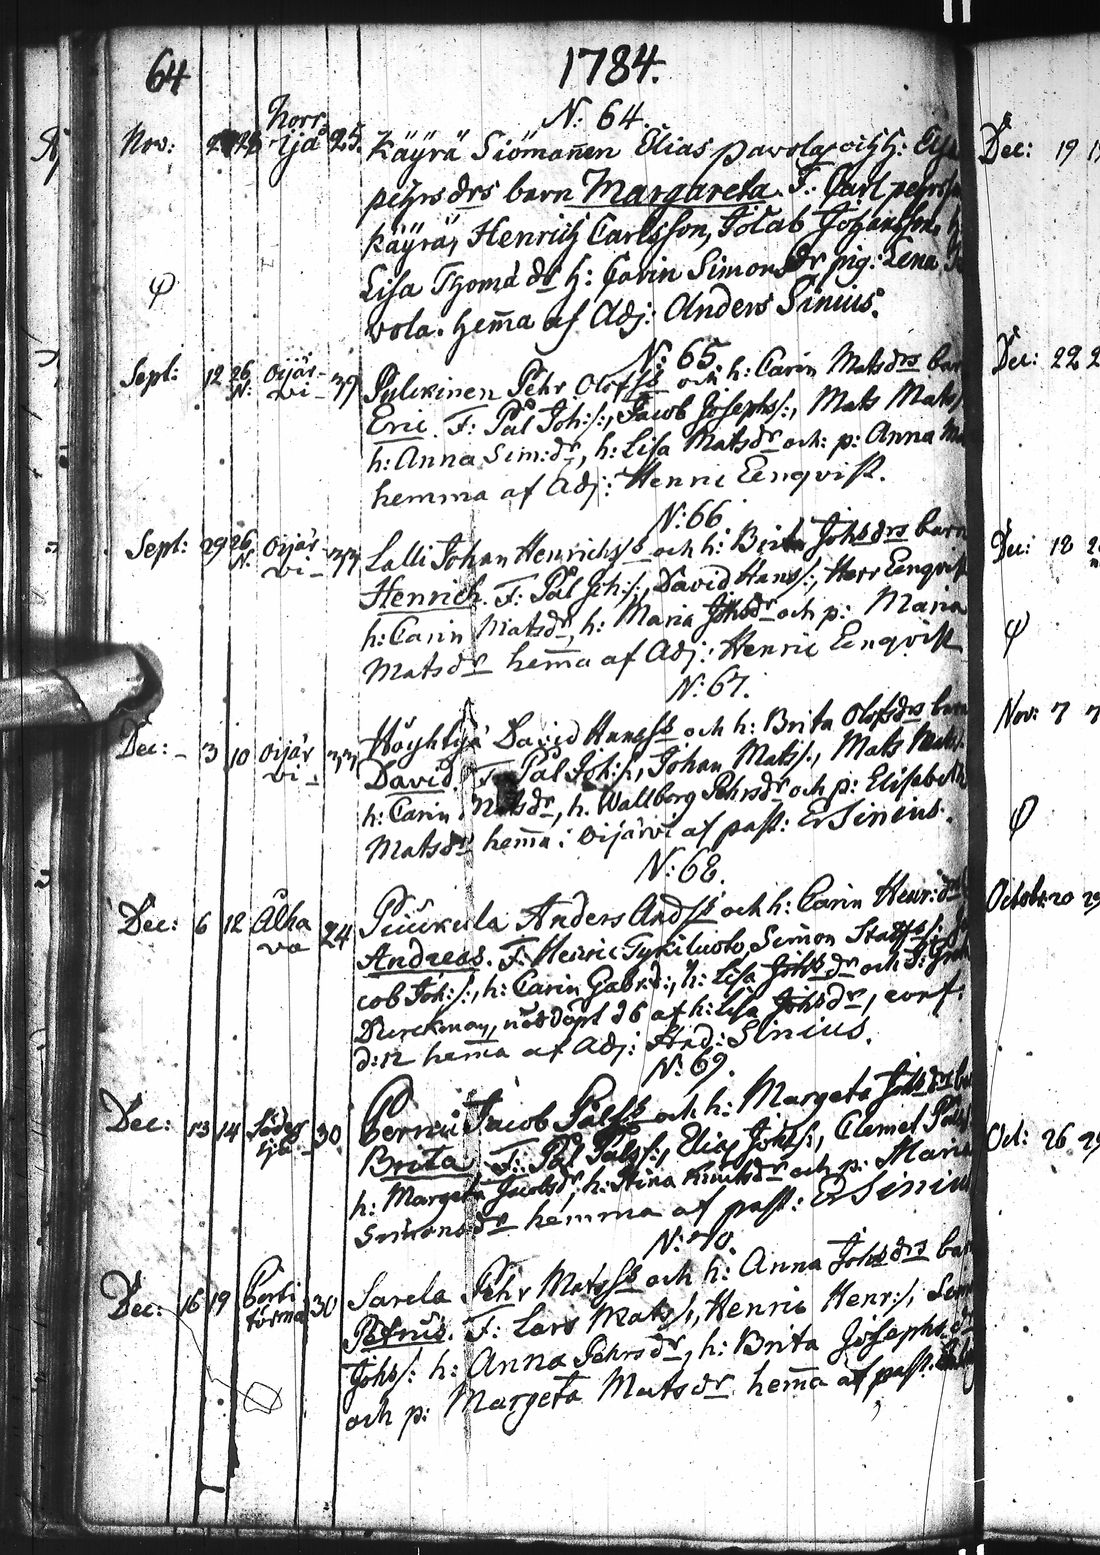 64
1784.
N: 64.
Nov: 28 Norr ijå 25. Käyrä Siömañen Elias pavolas och h:
pehrsdrs barn Margareta. F: Carl pehrs
Käyrä, Henrich Carlsson, Jacob Johansson,
φ Lisa Thoma dr h: Carin Simonsdr pig: Lena
vola. hem̄a af Adj: Anders Sinius.
N: 65.
Sept: 12 26 N: Oijär- vi - 39 Pulckinen Pehr Olofss och h: Carin Matsdrs barn
Eric. F: Pål Joh:/:, Jacob Josephs/:, Mats Mats/
h: Anna Sim:dr, h: Lisa Matsdr och: p: Anna
hemma af Adj: Henric Eenqvist.
N: 66.
Sept: 29 26 N. Oijär vi - 33 Lalli Johan Henrichss och h: Brita Johsdrs barn
Henrich. F: Pål Joh:/:, David Hans/:, Herr Eenqvist
h: Carin Matsdr, h: Maria Johsdr och p: Maria
Matsdr hem̄a af Adj: Henric Eenqvist
N: 67.
Dec: - 3 10 Oijär vi - 33 Höyhtyä David Hanss och h: Brita Olofsdrs barn
David. F: Pål Joh:/:, Johan Mats/:, Mats Mats/:
h: Carin Matsdr, h. Wallborg Pehrsdr och p: Elisabeth
Matsdr hem̄a i Oijärvi af past: E Sinius.
N: 68.
Dec: 6 12 Alha va 24 Anders Ands och h: Carin Henr:drs
Andreas. F: Henric Simon
cob Joh:/:, h: Carin Gabr:d:, h: Lisa Johsdr och
nöddöpt d6 af h: Lisa Johsdr, conf.
d: 12 hem̄a af Adj: And: Sinius.
N: 69.
Dec: 13 14 Söder ijå 30 Jacob Pålss och h: Margeta Johsdrs
Brita. F: Pål Påls/:, Elias Johs/:, Clemet Påls
h: Margeta Jacobsdr, h: Stina Knutsdr och p: Maria
Simonsdr hemma af past: E Sinius
N: 70.
Dec: 16 19 törmä 30 Sarela Pehr Matss och h: Anna Johsdrs bar
Petrus. F: Lars Mats/:, Henric Henr:/:
Johs/: h: Anna Pehrsdr, h: Brita Josephsdr
och p: Margeta Matsdr hem̄a af past:
Dec: 19
Dec: 22
Dec: 18
φ
Nov: 7
φ
Octob: 20 29
Oct: 26 29